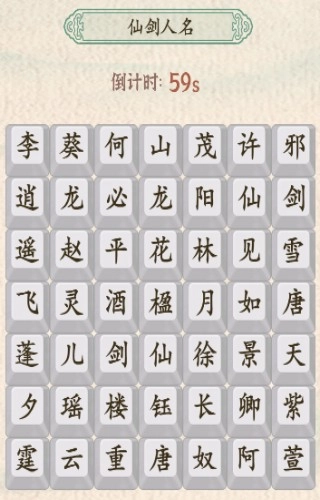 仙剑人名
倒计时: 59s
李葵何山茂许邪
逍龙必龙阳仙剑
遥赵平花林见雪
飞灵酒楹月如唐
蓬儿剑仙徐景天
夕瑶楼钰长卿紫
霆云重唐奴阿萱